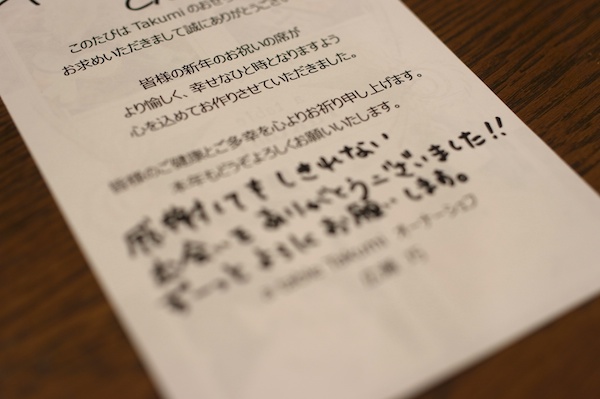 このたびは Takumi のおせ
お求めいただきまして誠にありがとうござい
皆様の新年のお祝いの席が
より愉しく、幸せなひと時となりますよう
心を込めてお作りさせていただきました。
皆様のご健康とご多幸を心よりお祈り申し上げます。
本年もどうぞよろしくお願いいたします。
感謝してもしきれない
出会いをありがとうございました!!
ずーっとよろしくお願いします。
Takumi オーナーシェフ